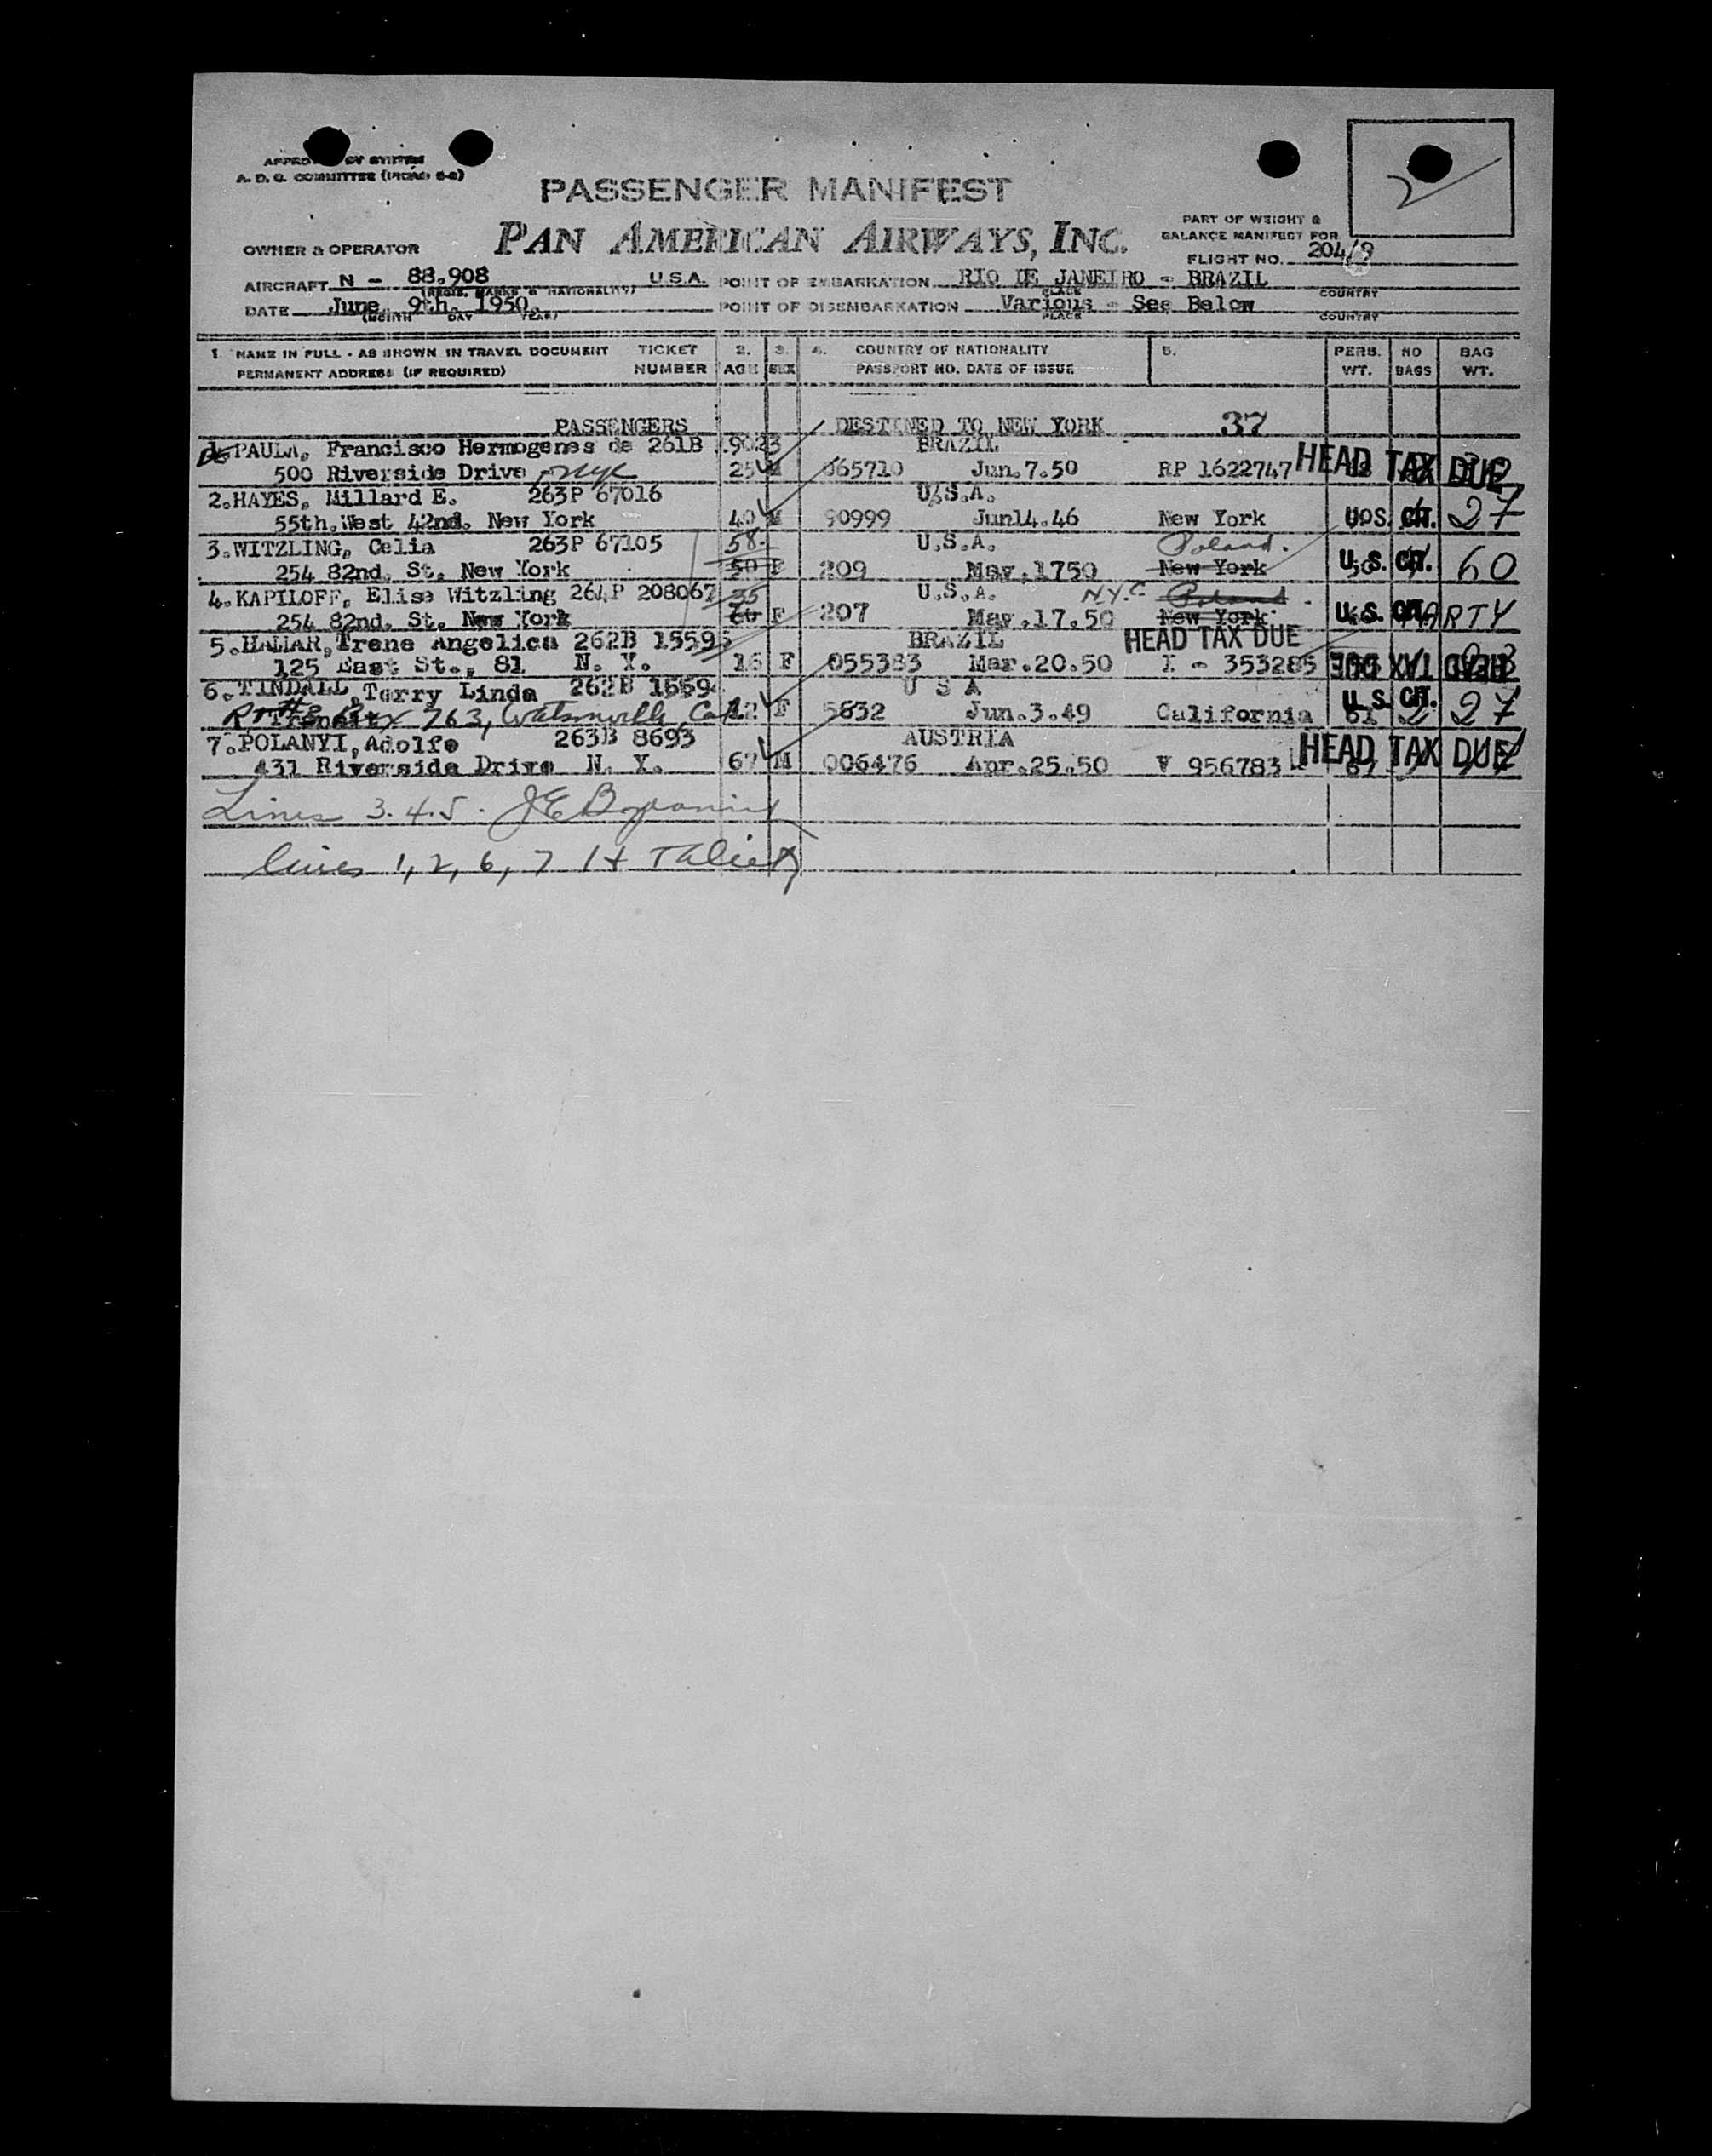 APPRO BY SYSTEM
A. D. G. COMMITTEE
2
PASSENGER MANIFEST
PAN AMERICAN AIRWAYS, INC.
PART OF WEIGHT &
BALANCE MANIFEST FOR
OWNER & OPERATOR
FLIGHT NO. 204/9
AIRCRAFT N - 88.908 U.S.A. POINT OF EMBARKATION RIO DE JANEIRO - BRAZIL
(REGIS. MARKS & NATIONALITY) PLACE COUNTRY
DATE June, 9th, 1950. POINT OF DISEMBARKATION Various - See Below
(MONTH DAY YEAR) PLACE COUNTRY
1. NAME IN FULL - AS SHOWN IN TRAVEL DOCUMENT TICKET 2. 3. 4. COUNTRY OF NATIONALITY 5. PERS. NO BAG
PERMANENT ADDRESS (IF REQUIRED) NUMBER AGE SEX PASSPORT NO. DATE OF ISSUE WT. BAGS WT.
PASSENGERS DESTINED TO NEW YORK 37
de PAULA, Francisco Hermogenes de 261B 9023 BRAZIL
500 Riverside Drive NYC 25 M 065710 Jun.7.50 RP 1622747 HEAD TAX DUE
2.HAYES, Millard E. 263P 67016 U.S.A.
55th,West 42nd. New York 40 M 90999 Jun14.46 New York U.S. CIT. 27
3.WITZLING, Celia 263P 67105 58. U.S.A. Poland.
254 82nd. St. New York 50 F 209 May.1750 New York U.S. CIT. 60
4.KAPILOFF, Elise Witzling 264P 208067 35 U.S.A. N.Y.C. Poland.
254 82nd. St. New York 60 F 207 May.17.50 New York. U.S. CIT. PARTY
5.HAMAR, Irene Angelica 262B 15595 BRAZIL HEAD TAX DUE
125 East St., 81 N. Y. 16 F 055383 Mar.20.50 I - 353285 HEAD TAX DUE
6.TINDALL, Terry Linda 262B 1559 U S A U.S. CIT.
Rt #3 Box 763, Watsonville, Cal. Transit 12 F 5632 Jun.3.49 California 61 2 27
7.POLANYI, Adolfo 263B 8693 AUSTRIA
431 Riverside Drive N. Y. 67 M 006476 Apr.25.50 V 956783 HEAD TAX DUE
Lines 3. 4. 5.
lines 1, 2, 6, 7